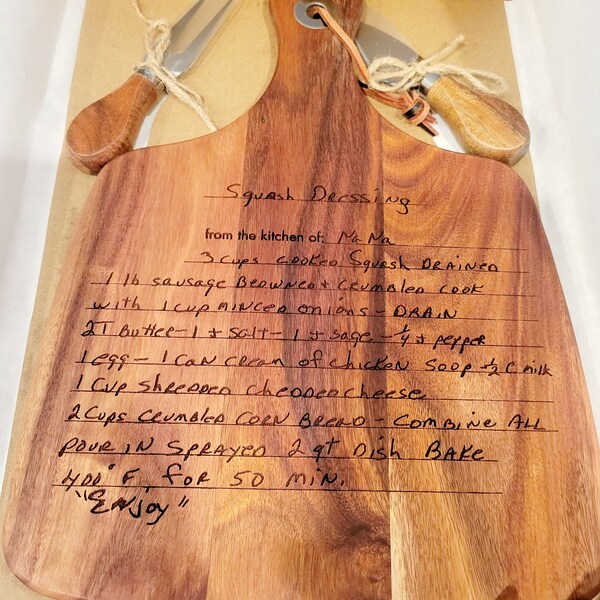 Squash Dressing
from the kitchen of: MaNa
3 cups cooked Squash DRAINED
1 lb sausage BROWNED & CRUMBLED COOK
with 1 cup MINCED ONIONS - DRAIN
2T Butter - 1 t salt - 1 t sage - ¼ t pepper
1 egg - 1 can cream of chicken soup - ½ C milk
1 cup shredded cheddar cheese
2 cups CRUMBLED CORN BREAD - COMBINE ALL
POUR IN SPRAYED 2 qt Dish BAKE
400°F, for 50 MIN.
"ENJOY"